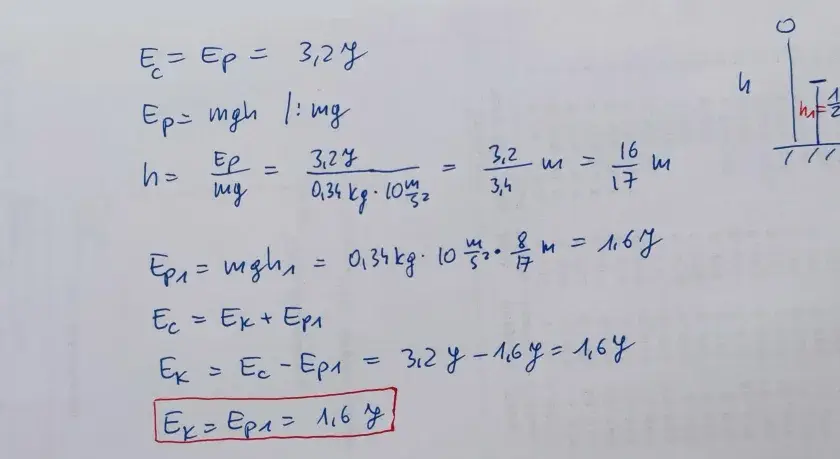 E_c = E_p = 3,2 J
E_p = mgh /: mg
h = E_p/mg = 3,2 J/0,34 kg · 10 m/s² = 3,2/3,4 m = 16/17 m
E_p1 = mgh_1 = 0,34 kg · 10 m/s² · 8/17 m = 1,6 J
E_c = E_k + E_p1
E_k = E_c - E_p1 = 3,2 J - 1,6 J = 1,6 J
E_k = E_p1 = 1,6 J
h
h_1 = 1/2